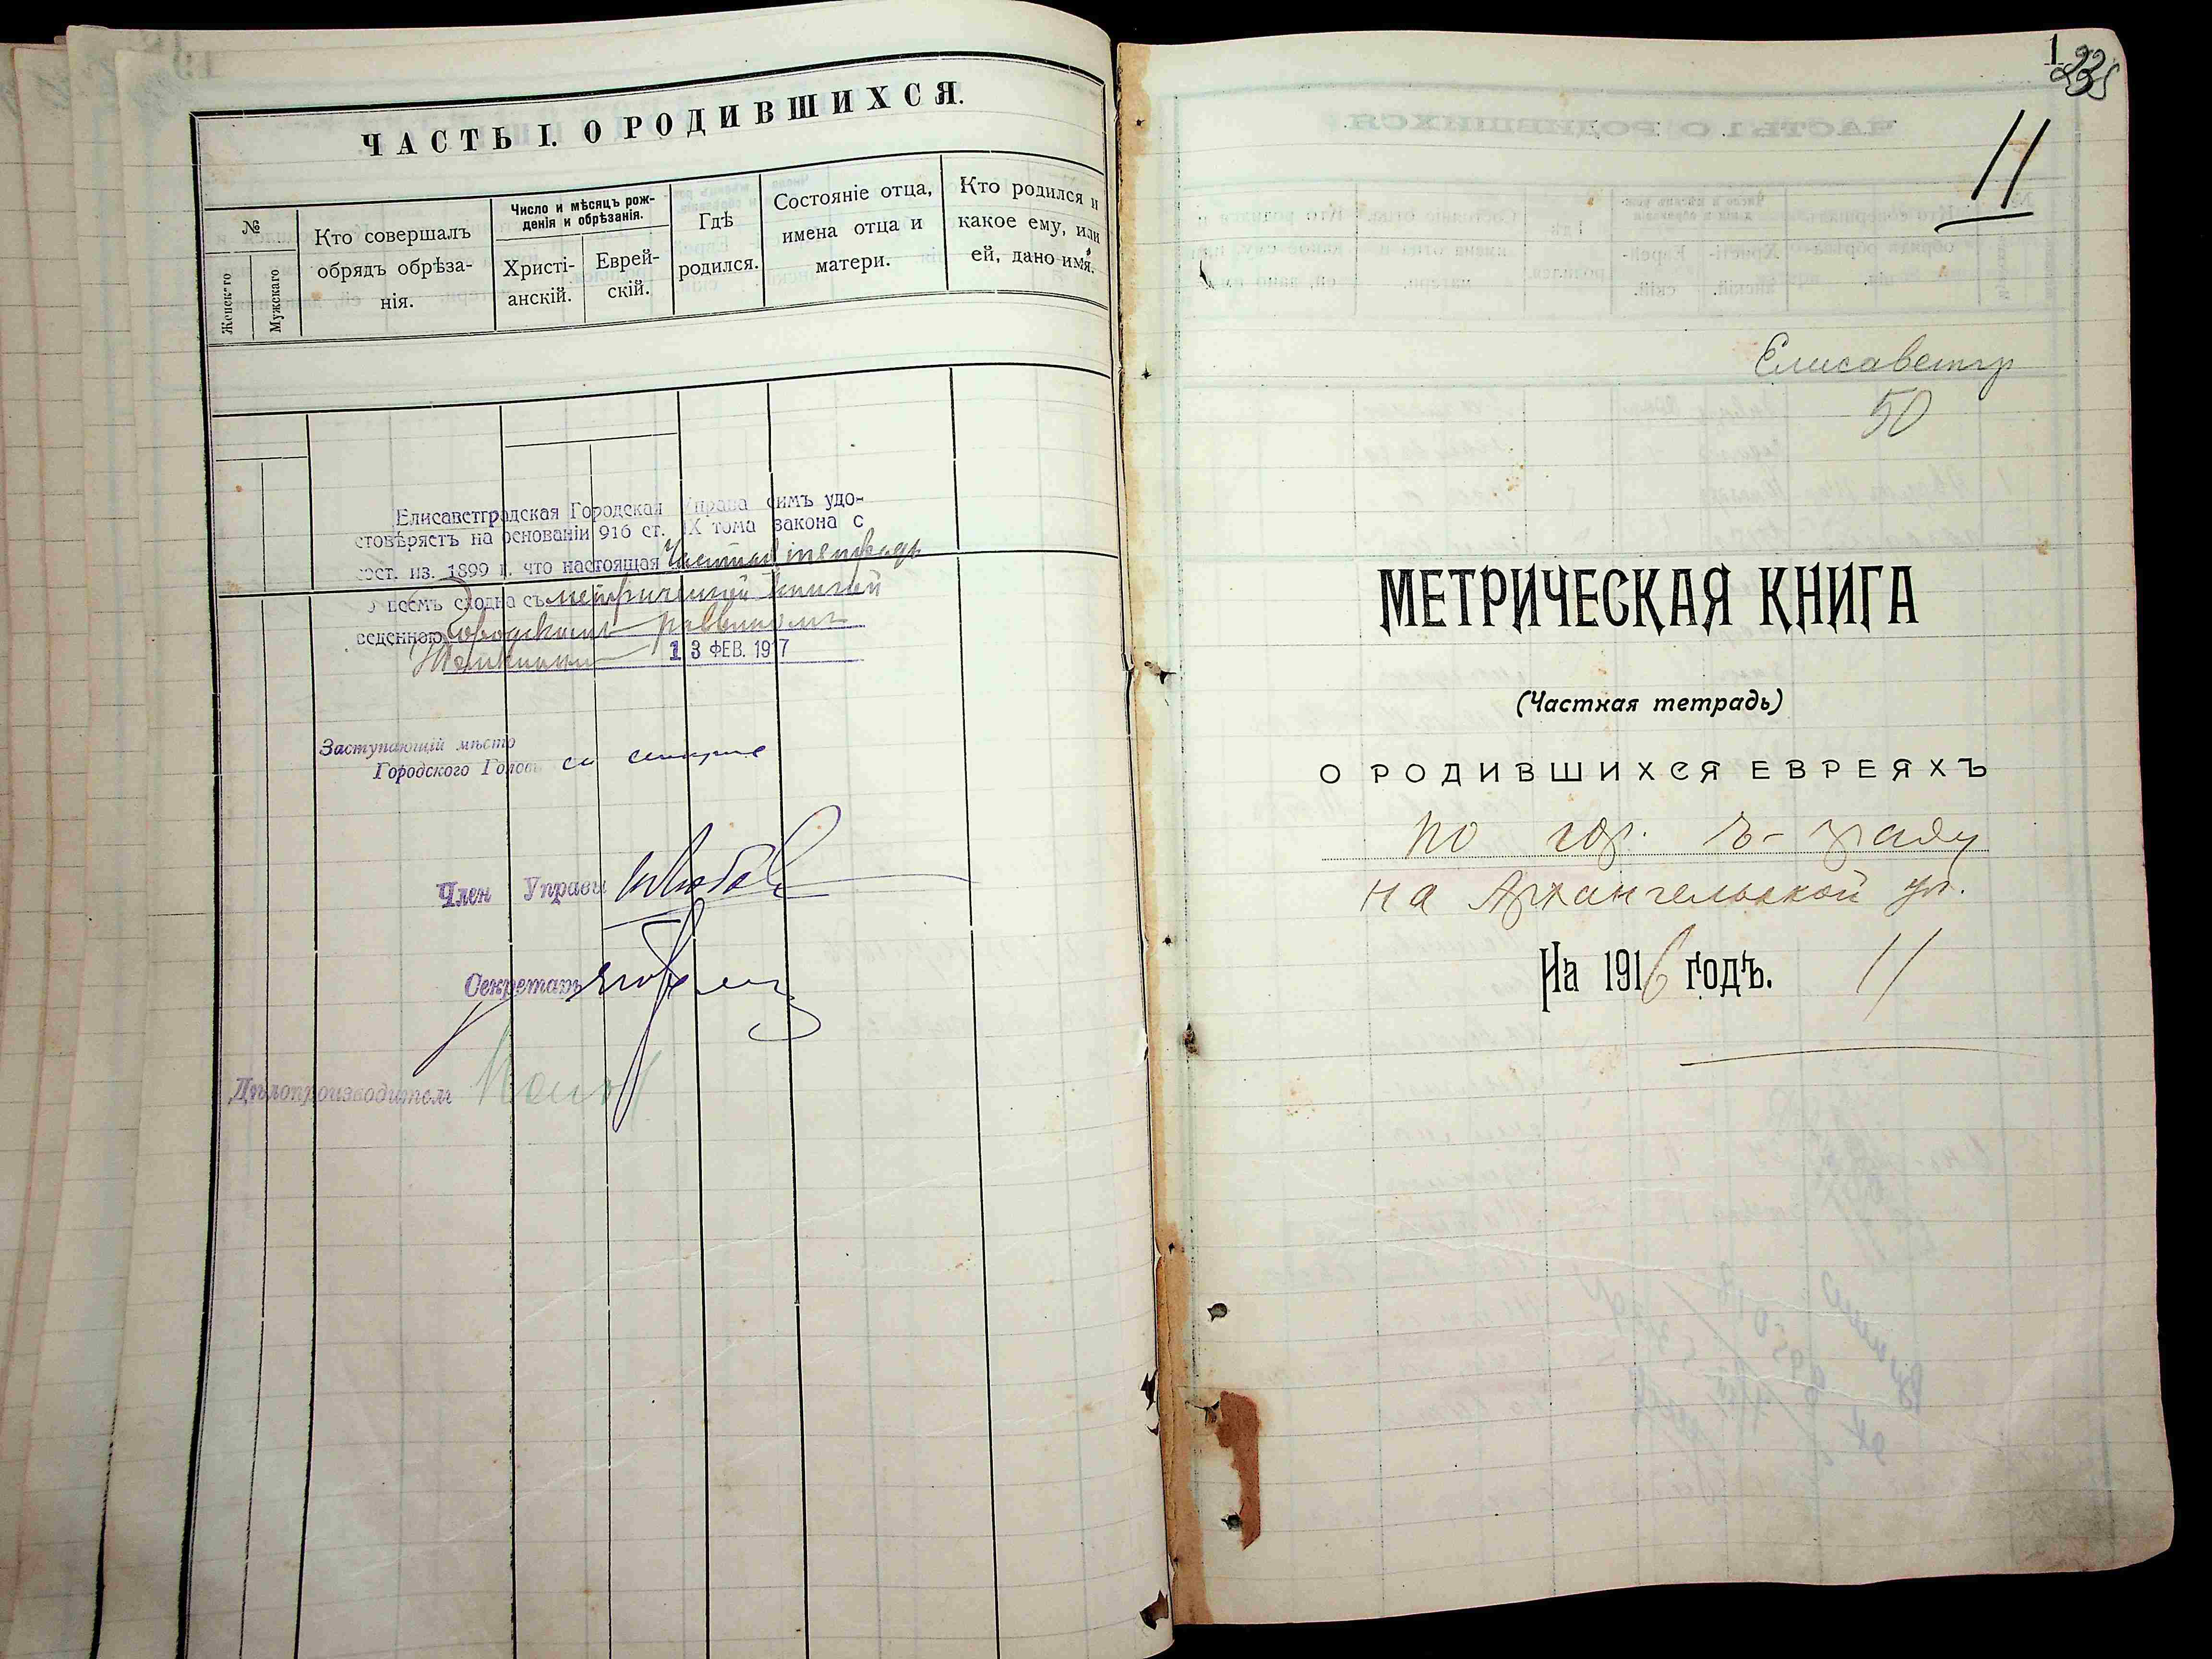 ЧАСТЬ I. О РОДИВШИХСЯ.
№
Женскаго
Мужскаго
Кто совершалъ
обрядъ обрѣза-
нія.
Число и мѣсяцъ рож-
денія и обрѣзанія.
Христі-
анскій.
Еврей-
скій.
Гдѣ
родился.
Состояніе отца,
имена отца и
матери.
Кто родился и
какое ему, или
ей, дано имя.
Елисаветградская Городская Управа симъ удо-
стовѣряетъ на основаніи 916 ст. IX тома закона с
сост. из. 1899 г. что настоящая Частная тетрадь
во всемъ сходна съ метрической книгой
веденною Городскимъ раввиномъ
13 ФЕВ. 1917
Заступающій мѣсто
Городского Головы
Член Управы
Секретарь
Дѣлопроизводитель
1
11
Елисаветгр
50
МЕТРИЧЕСКАЯ КНИГА
(Частная тетрадь)
О РОДИВШИХСЯ ЕВРЕЯХЪ
по гор. Е-граду
на Архангельской ул.
На 1916 годъ. 11